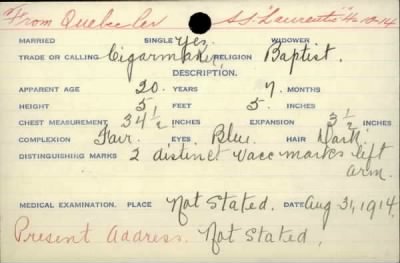 From Quebec per S.S. "Laurentic" 4-10-14
MARRIED SINGLE Yes. WIDOWER
TRADE OR CALLING Cigarmaker RELIGION Baptist.
DESCRIPTION.
APPARENT AGE 20 YEARS 7 MONTHS
HEIGHT 5 FEET 5 INCHES
CHEST MEASUREMENT 34 1/2 INCHES EXPANSION 3 1/2 INCHES
COMPLEXION Fair. EYES Blue. HAIR Dark.
DISTINGUISHING MARKS 2 distinct vacc marks left
arm.
MEDICAL EXAMINATION. PLACE Not Stated. DATE Aug 31, 1914.
Present Address. Not Stated.